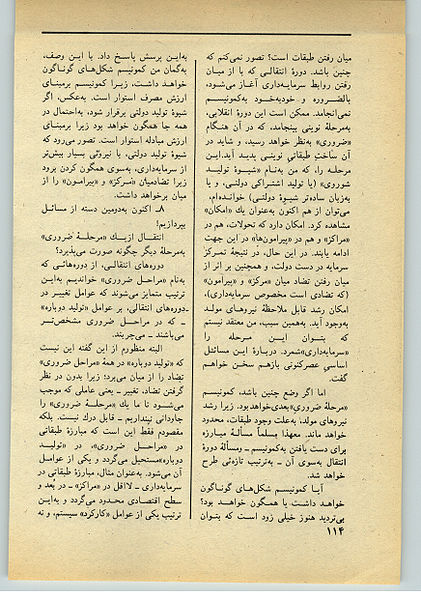 میان رفتن طبقات است؟ تصور نمی‌کنم که
چنین باشد. دورهٔ انتقالی که با از میان
رفتن روابط سرمایه‌داری آغاز می‌شود،
بالضروره و خودبه‌خود به‌کمونیسم
نمی‌انجامد. ممکن است این دورهٔ انقلابی،
به‌مرحلهٔ نوینی بینجامد، که در آن هنگام
«ضروری» به‌نظر خواهد رسید، و شاید در
آن ساخت طبقاتی نوینی پدید آید. این
مرحله را، که من به‌نام «شیوهٔ تولید
شوروی» (یا تولید اشتراکی دولتی، و یا
به‌زبان ساده‌تر شیوهٔ دولتی) خوانده‌ام،
می‌توان از هم اکنون به‌عنوان یك «امکان»
مشاهده کرد. امکان دارد که تحولات، هم در
«مراکز» و هم در «پیرامون‌ها» در این جهت
ادامه یابند. در این حال، در نتیجهٔ تمرکز
سرمایه در دست دولت، و همچنین بر اثر از
میان رفتن تضاد میان «مرکز» و «پیرامون»
(که تضادی است مخصوص سرمایه‌داری)،
امکان رشد قابل ملاحظهٔ نیروهای مولد
به‌وجود آید. به‌همین سبب، من معتقد نیستم
که بتوان این مرحله را
«سرمایه‌داری»شمرد. دربارهٔ این مسائل
اساسی عصرکنونی بازهم سخن خواهم
گفت.
اما اگر وضع چنین باشد، کمونیسم
«مرحلهٔ ضروری»بعدی‌خواهدبود. زیرا رشد
نیروهای مولد، به‌علت وجود طبقات، محدود
خواهد ماند. معهذا مسلماً مسألهٔ مبارزه
برای دست یافتن به‌کمونیسم ـ ومسألهٔ دورهٔ
انتقال به‌سوی آن ـ به‌ترتیب تازه‌ئی طرح
خواهد شد.
آیا کمونیسم شکل‌های گوناگون
خواهد داشت یا همگون خواهد بود؟
بی‌تردید هنوز خیلی زود است که بتوان
به‌این پرسش پاسخ داد. با این وصف،
به‌گمان من کمونیسم شکل‌های گوناگون
خواهد داشت، زیرا کمونیسم برمبنای
ارزش مصرف استوار است. به‌عکس، اگر
شیوهٔ تولید دولتی برقرار شود، به‌احتمال در
همه جا همگون خواهد بود زیرا برمبنای
ارزش مبادله استوار است. تصور می‌رود که
شیوهٔ تولید دولتی، با نیروئی بسیار بیش‌تر
از سرمایه‌داری، به‌سوی همگون کردن برود
زیرا تضادمیان «مرکز» و «پیرامون» را از
میان برخواهد داشت.
۸ـ اکنون به‌دومین دسته از مسائل
بپردازیم:
انتقال ازیك «مرحلهٔ ضروری»
به‌مرحلهٔ دیگر چگونه صورت می‌پذیرد؟
دوره‌های انتقالی، از دوره‌هائی که
به‌نام «مراحل ضروری» خواندیم به‌این
ترتیب متمایز می‌شوند که عوامل تغییر در
ـ‌دوره‌های انتقالی، بر عوامل «تولید دوباره»
ـ که در مراحل ضروری مشخص‌تر
می‌باشند ـ می‌چربند.
البته منظورم از این گفته این نیست
که «تولید دوباره» در همهٔ «مراحل ضروری»
تضاد را از میان می‌برد؛ زیرا بدون در نظر
گرفتن تضاد، تغییر ـ یعنی عاملی که موجب
می‌شود تا ما یك «مرحلهٔ ضروری» را
جاودانی نپنداریم ـ قابل درك نیست. بلکه
مقصودم فقط این است که مبارزهٔ طبقاتی
در «مراحل ضروری»، در «تولید
دوباره»مستحیل می‌گردد و یکی از عوامل
آن می‌شود. به‌عنوان مثال، مبارزهٔ طبقاتی در
سرمایه‌داری ـ لااقل در «مراکز» ـ در بُعد و
سطح اقتصادی محدود می‌گردد و به‌این
ترتیب یکی از عوامل «کارکرد» سیستم، و نه
۱۱۴